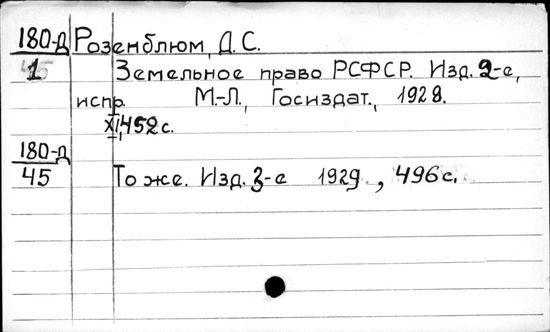 180-Д Розенблюм, Д.С.
1 Земельное право РСФСР. Изд. 2-е,
испр. М.-Л., Госиздат., 1928.
XI, 452 с.
180-Д
45 То же. Изд. 3-е 1929, 496 с.